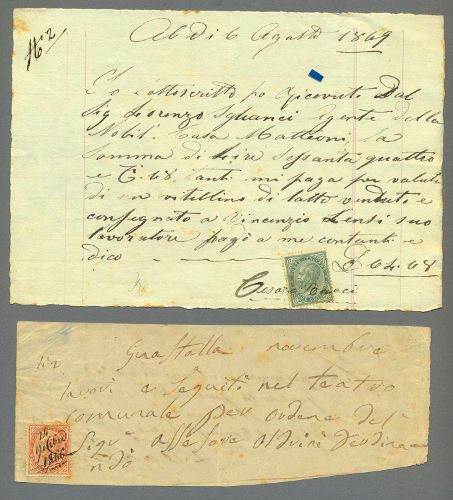 N 2
A dì 6 Agosto 1869
Io sottoscritto ho ricevuto dal
Sig Lorenzo Agente della
Nobil. Casa Matteoni la
somma di Lire Sessanta quattro
e C. 68. tanti mi paga per valuta
di un vitellino di latte venduto e
consegnato a Vincenzio Lensi suo
lavoratore pagò a me contanti e
dico £ 64. 68
Cesare
N 2
Guastalla novembre
lavori e seguiti nel teatro
comunale per ordene del
Sigr assesore
ndo
14
1866